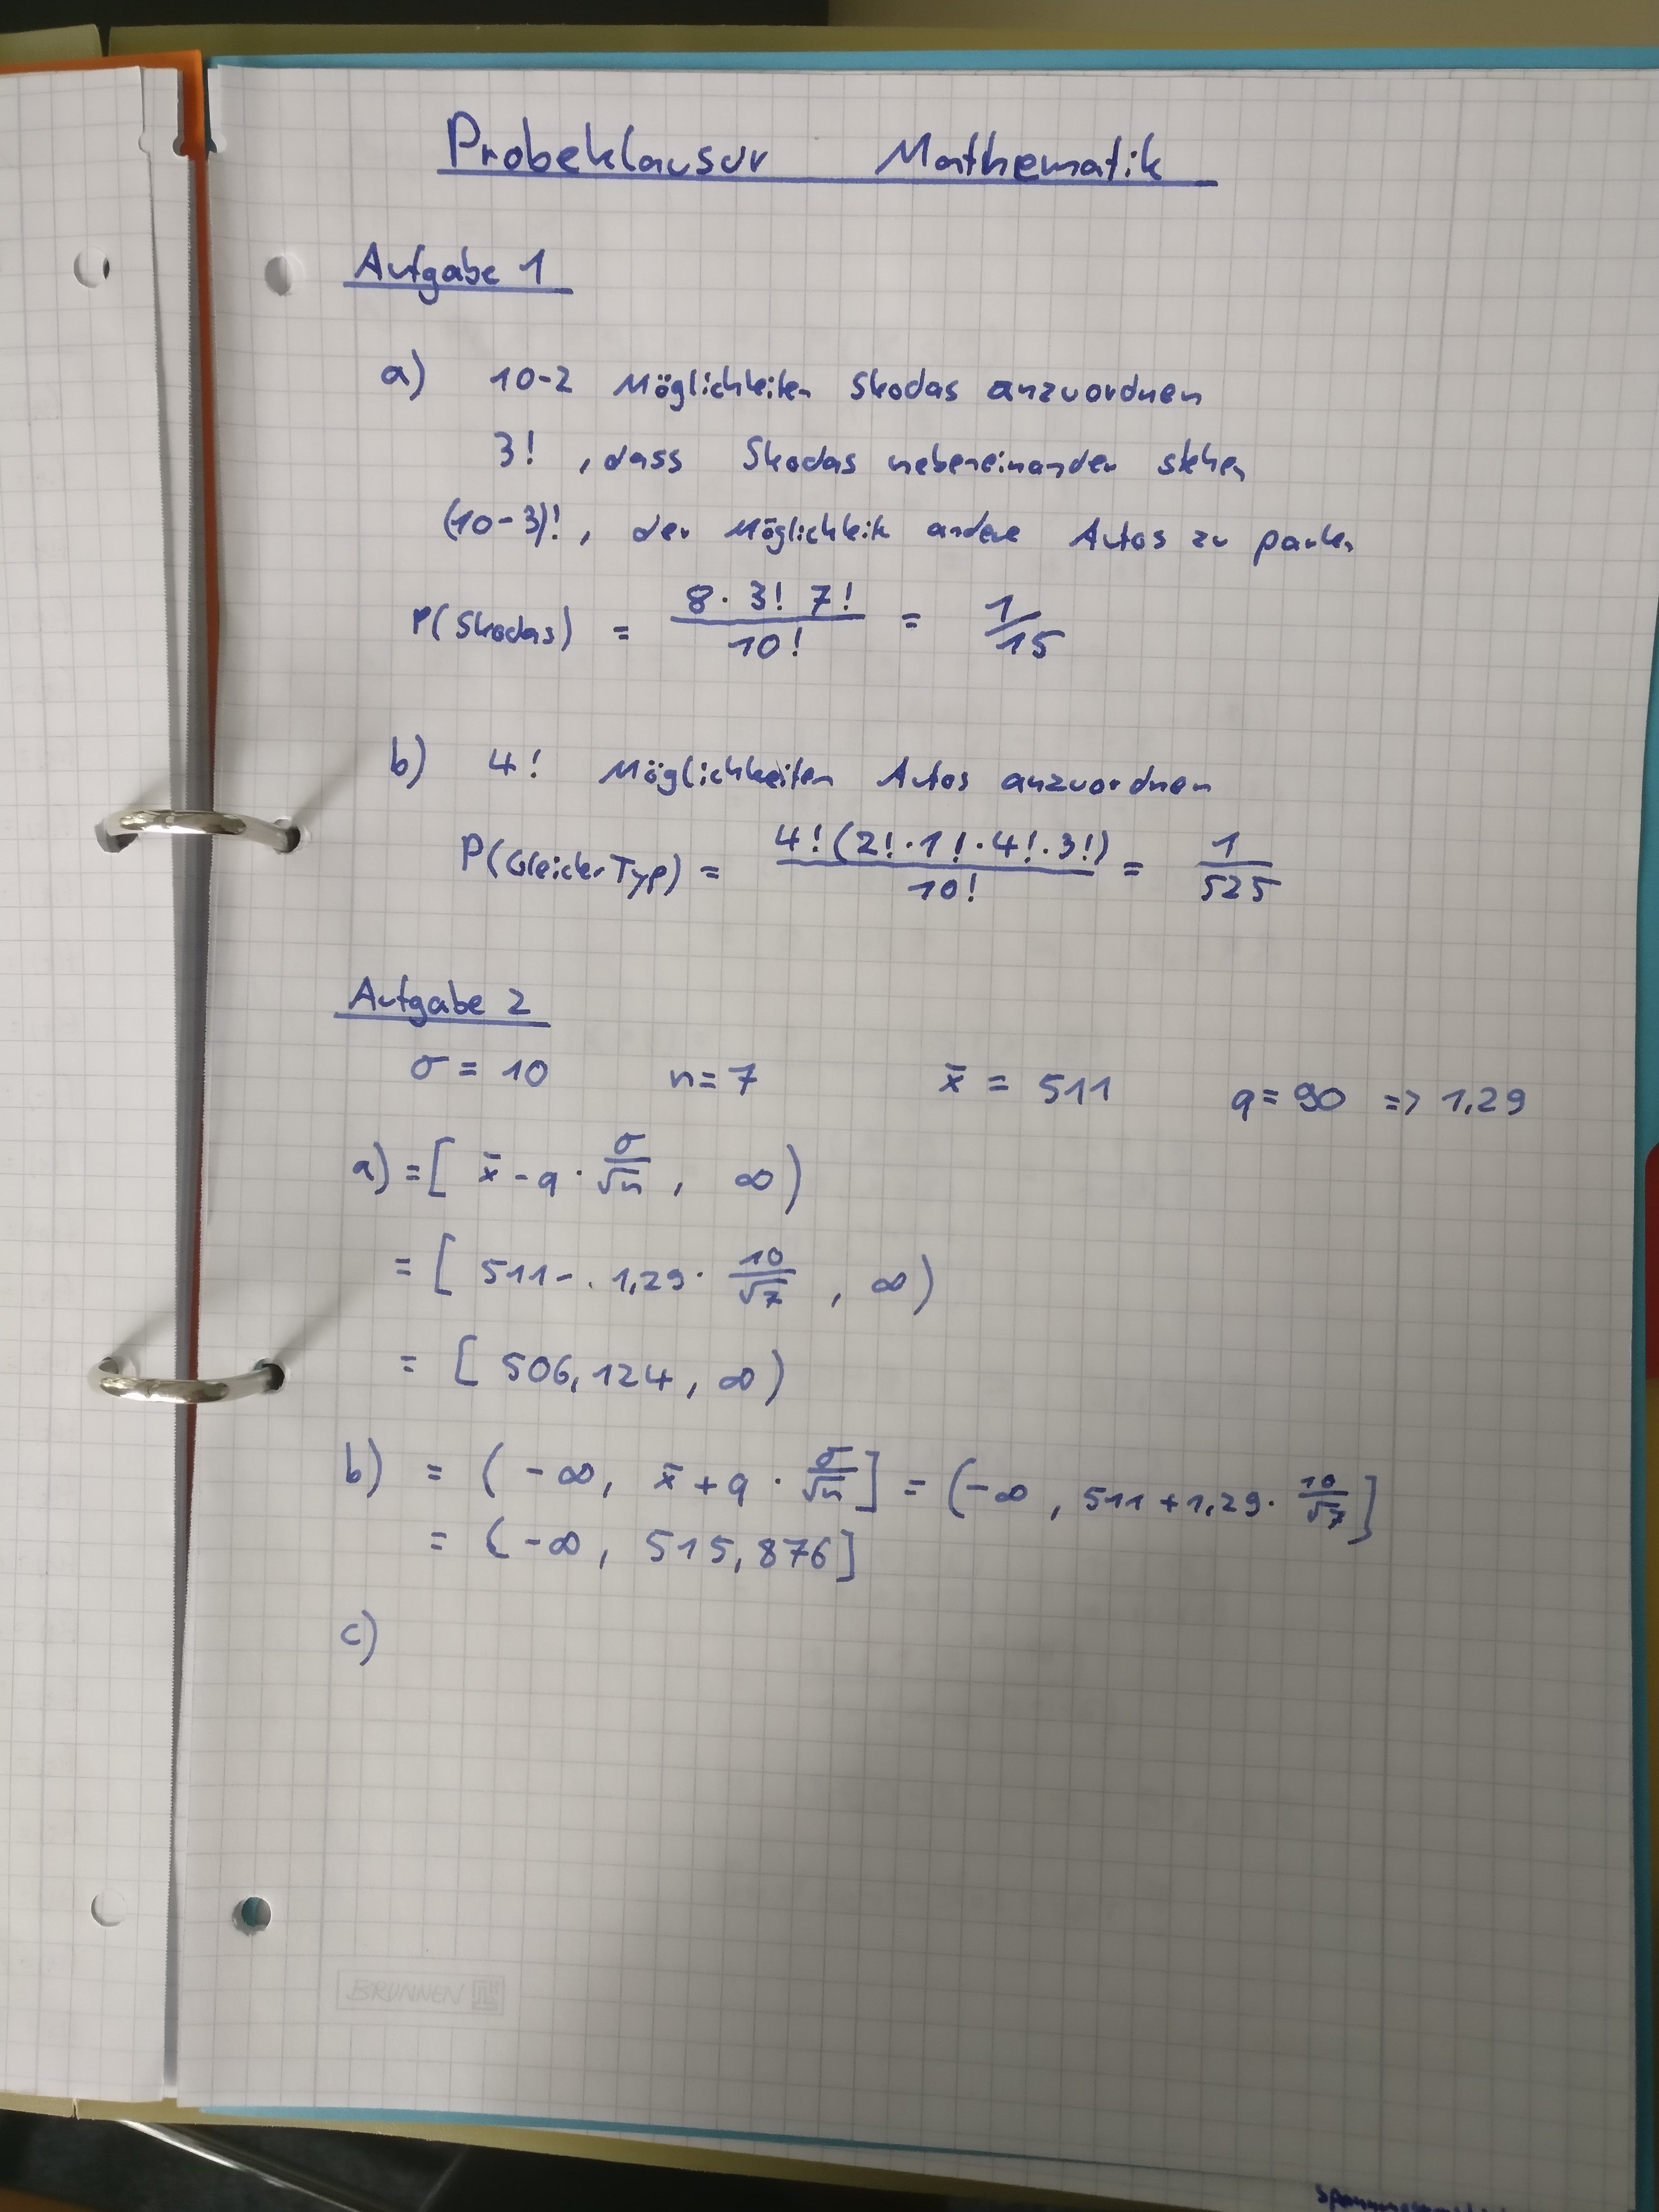 Probeklausur Mathematik
Aufgabe 1
a) 10-2 Möglichkeiten Skodas anzuordnen
3! , dass Skodas nebeneinander stehen
(10-3)! , der Möglichkeit andere Autos zu parken
P(Skodas) = 8 · 3! 7! / 10! = 1/15
b) 4! Möglichkeiten Autos anzuordnen
P(Gleicher Typ) = 4! (2! · 1! · 4! · 3!) / 10! = 1/525
Aufgabe 2
σ = 10 n = 7 x̄ = 511 q = 90 => 1,29
a) = [ x̄ - q · σ/√n , ∞ )
= [ 511 - . 1,29 · 10/√7 , ∞ )
= [ 506,124 , ∞ )
b) = ( -∞ , x̄ + q · σ/√n ] = ( -∞ , 511 + 1,29 · 10/√7 ]
= ( -∞ , 515,876 ]
c)
BRUNNEN